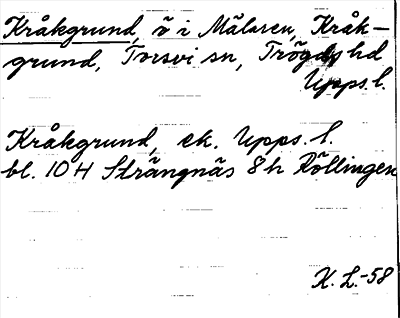 Kråkgrund, ö i Mälaren, Kråk-
grund, Torsvi sn, Trögds hd
Upps. l.
Kråkgrund, ek. Upps. l.
bl. 10 H Strängnäs 8 h Röllingen
K. L. -58